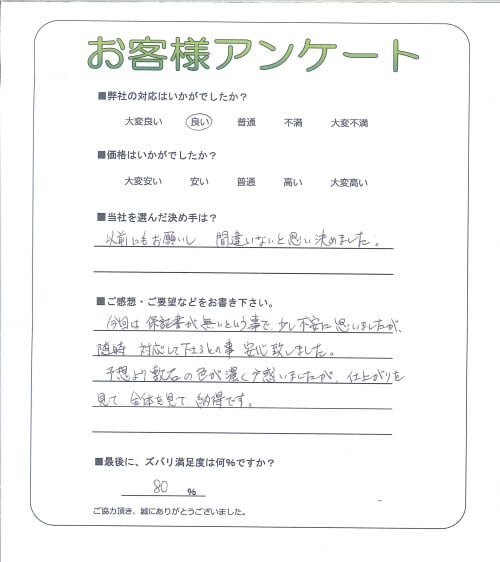 お客様アンケート
■弊社の対応はいかがでしたか？
大変良い 良い 普通 不満 大変不満
■価格はいかがでしたか？
大変安い 安い 普通 高い 大変高い
■当社を選んだ決め手は？
以前にもお願いし 間違いないと思い決めました。
■ご感想・ご要望などをお書き下さい。
今回は 保証書が無いという事で、少し不安に思いましたが、
随時 対応して下さるとの事 安心致しました。
予想より敷石の色が濃く戸惑いましたが、仕上がりを
見て、全体を見て、納得です。
■最後に、ズバリ満足度は何％ですか？
80 ％
ご協力頂き、誠にありがとうございました。